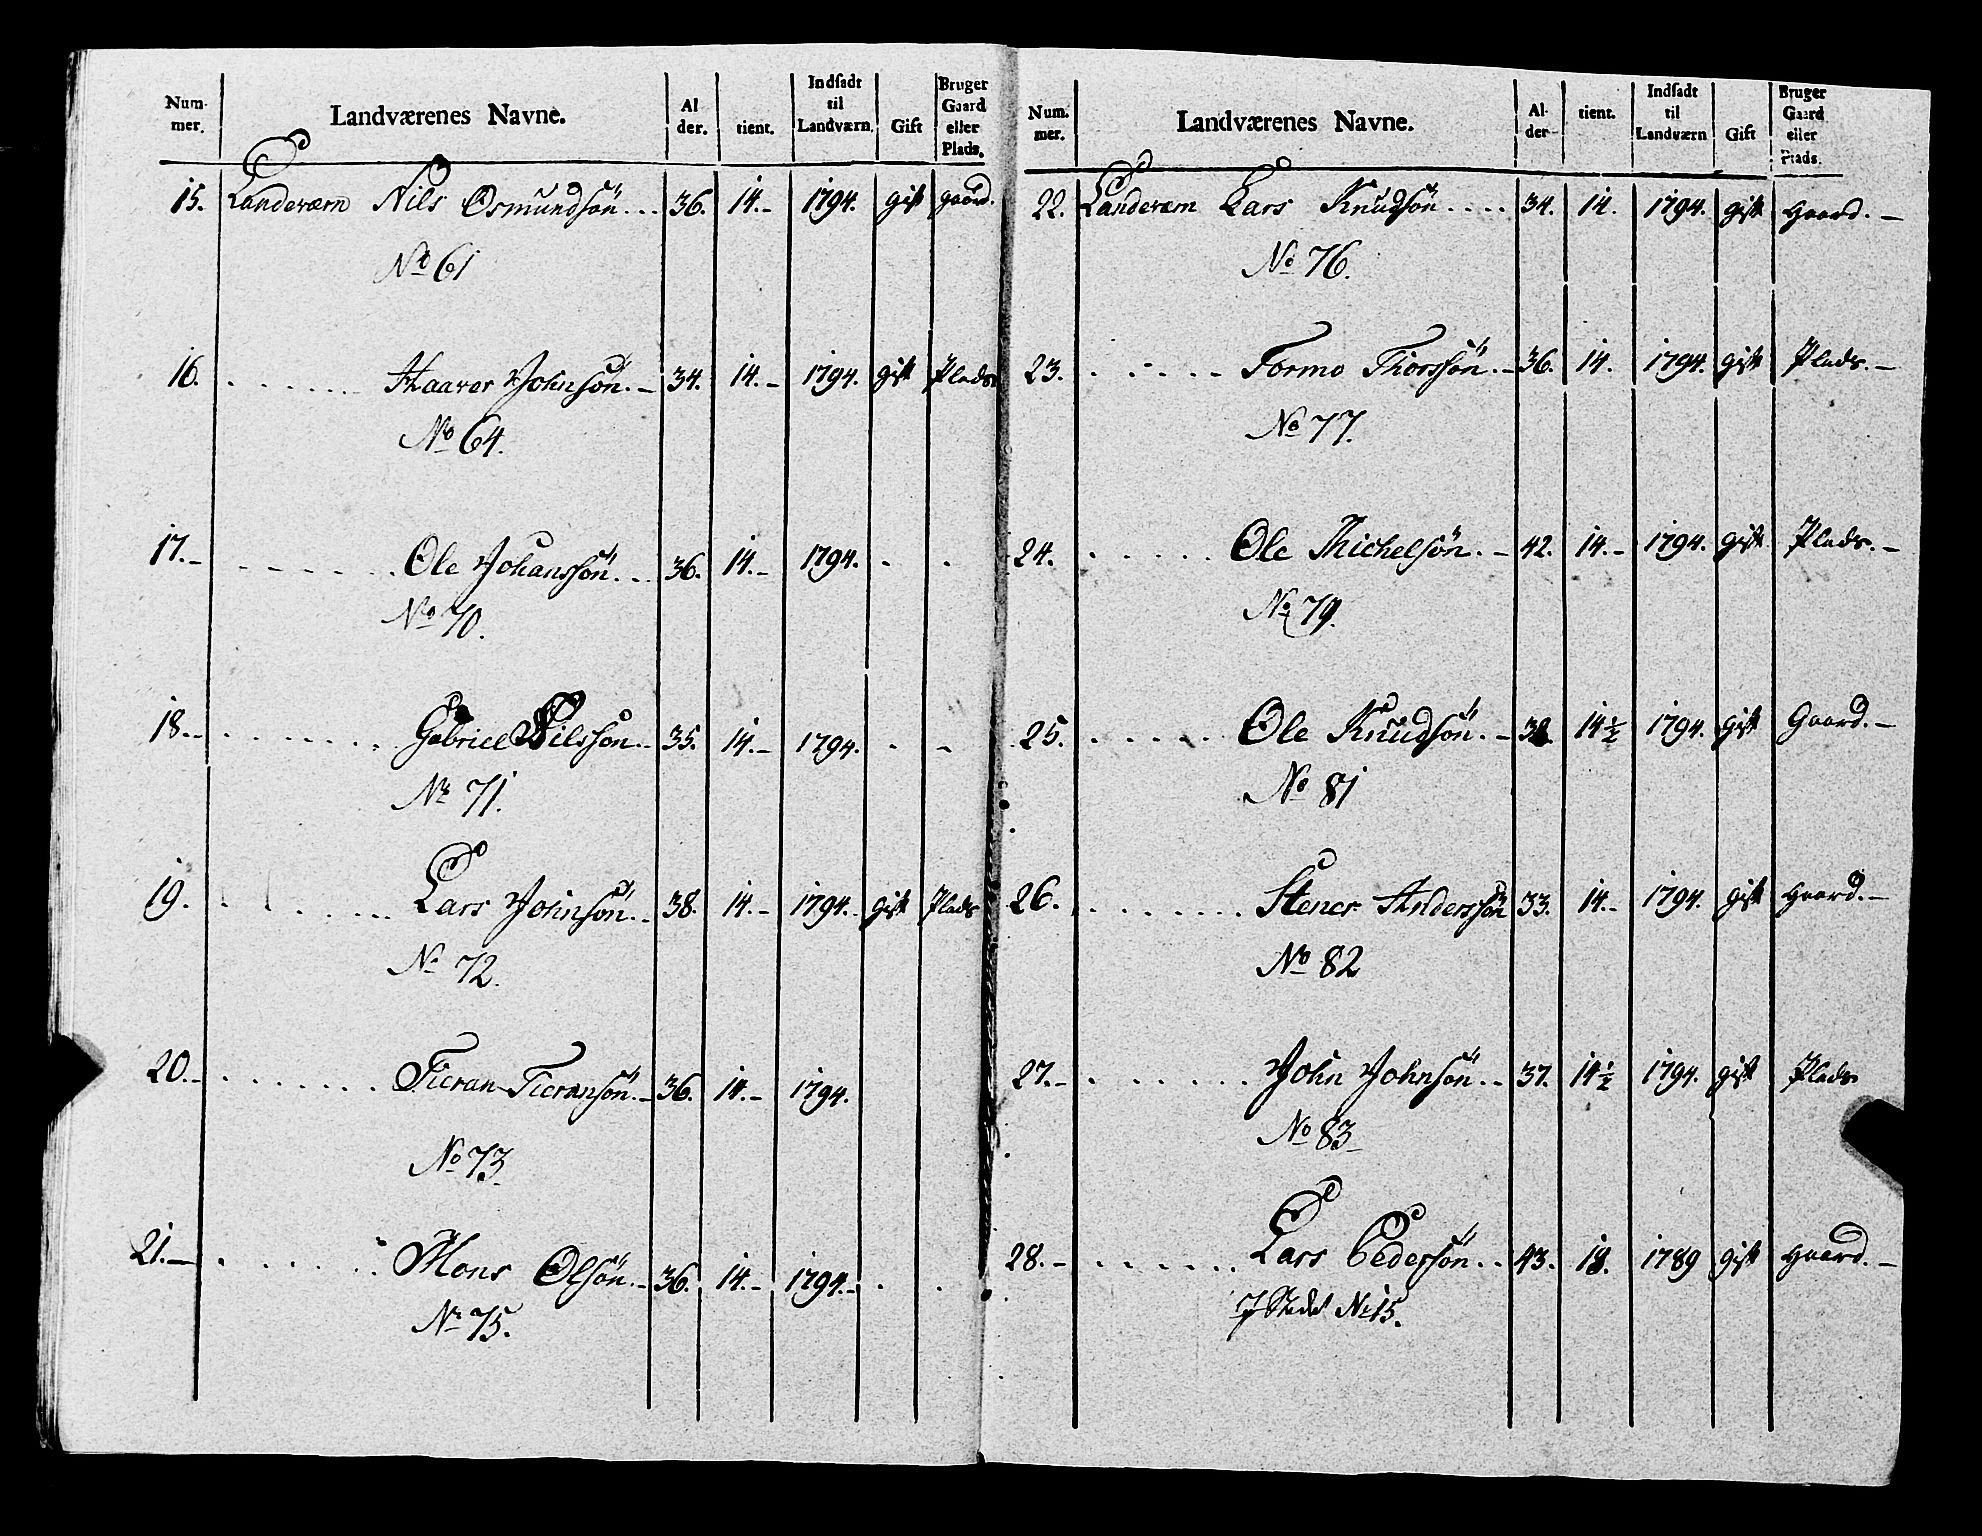 Num-
mer.
Landværenes Navne.
Al
der.
tient.
Indsadt
til
Landværn.
Gift
Bruger
Gaard
eller
Plads.
15. Landeværn Nils Osmundsön... 36. 14.- 1794. gift gaard.
No 61
16. . . . . . . Haaver Johnsön.- 34. 14.- 1794. gift Plads
No 64.
17.- . . . . . . . Ole Johanssön... 36. 14.- 1794. . .
No 70.
18.- . . . . . . . Gabriel Nilssön.. 35. 14.- 1794. . -
No 71.
19. . . . . . . . Lars Johnsön.. 38. 14.- 1794.- gift Plads
No 72.
20.- . . . . . . . Tieran Tieransön.- 36. 14.- 1794.
No 73.
21.- . . . . . . Mons Olsön.- 36. 14.- 1794.- . .
No 75.
Num.
mer.
Landværenes Navne.
Al-
der
tient.
Indsadt
til
Landværn
Gift
Bruger
Gaard
eller
Plads.
22. Landeværn Lars Knudsön.... 34. 14. 1794. gift Gaard.-
No 76.
23. . . . . . Tormo Thorssön.- 36. 14. 1794. gift Plads.-
No 77.
24. . . . . . Ole Michelsön.- 42. 14.- 1794. gift Plads.-
No 79.
25. . . . . . . Ole Knudsön.- 14½ 1794. gift Gaard.-
No 81
26. . . . . . . . Stener Anderssön 33. 14.- 1794. gift Gaard.-
No 82
27.- . . . . . . . John Johnsön.. 37. 14½ 1794. gift Plads
No 83
28.- . . . . . . . Lars Pedersön.. 43. 18. 1789 gift Gaard.-
I Stedet No 15.